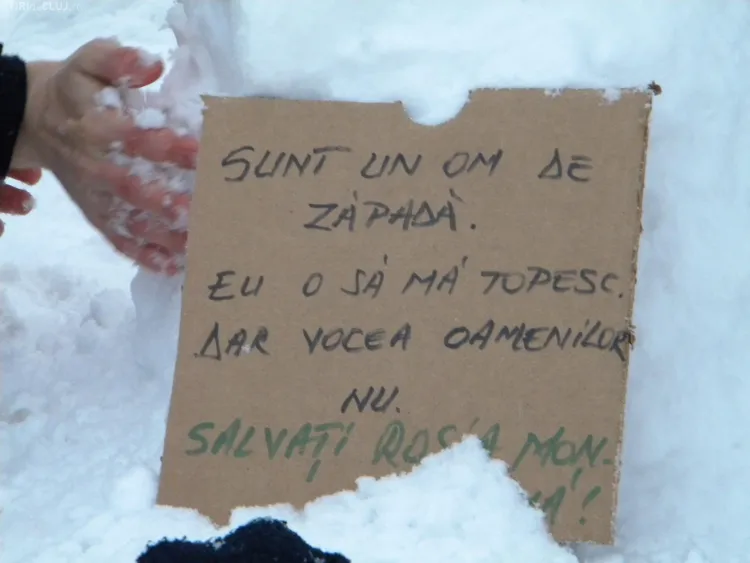 SUNT UN OM DE
ZĂPADĂ.
EU O SĂ MĂ TOPESC.
DAR VOCEA OAMENILOR
NU.
SALVAȚI ROȘIA MON-
Ă!